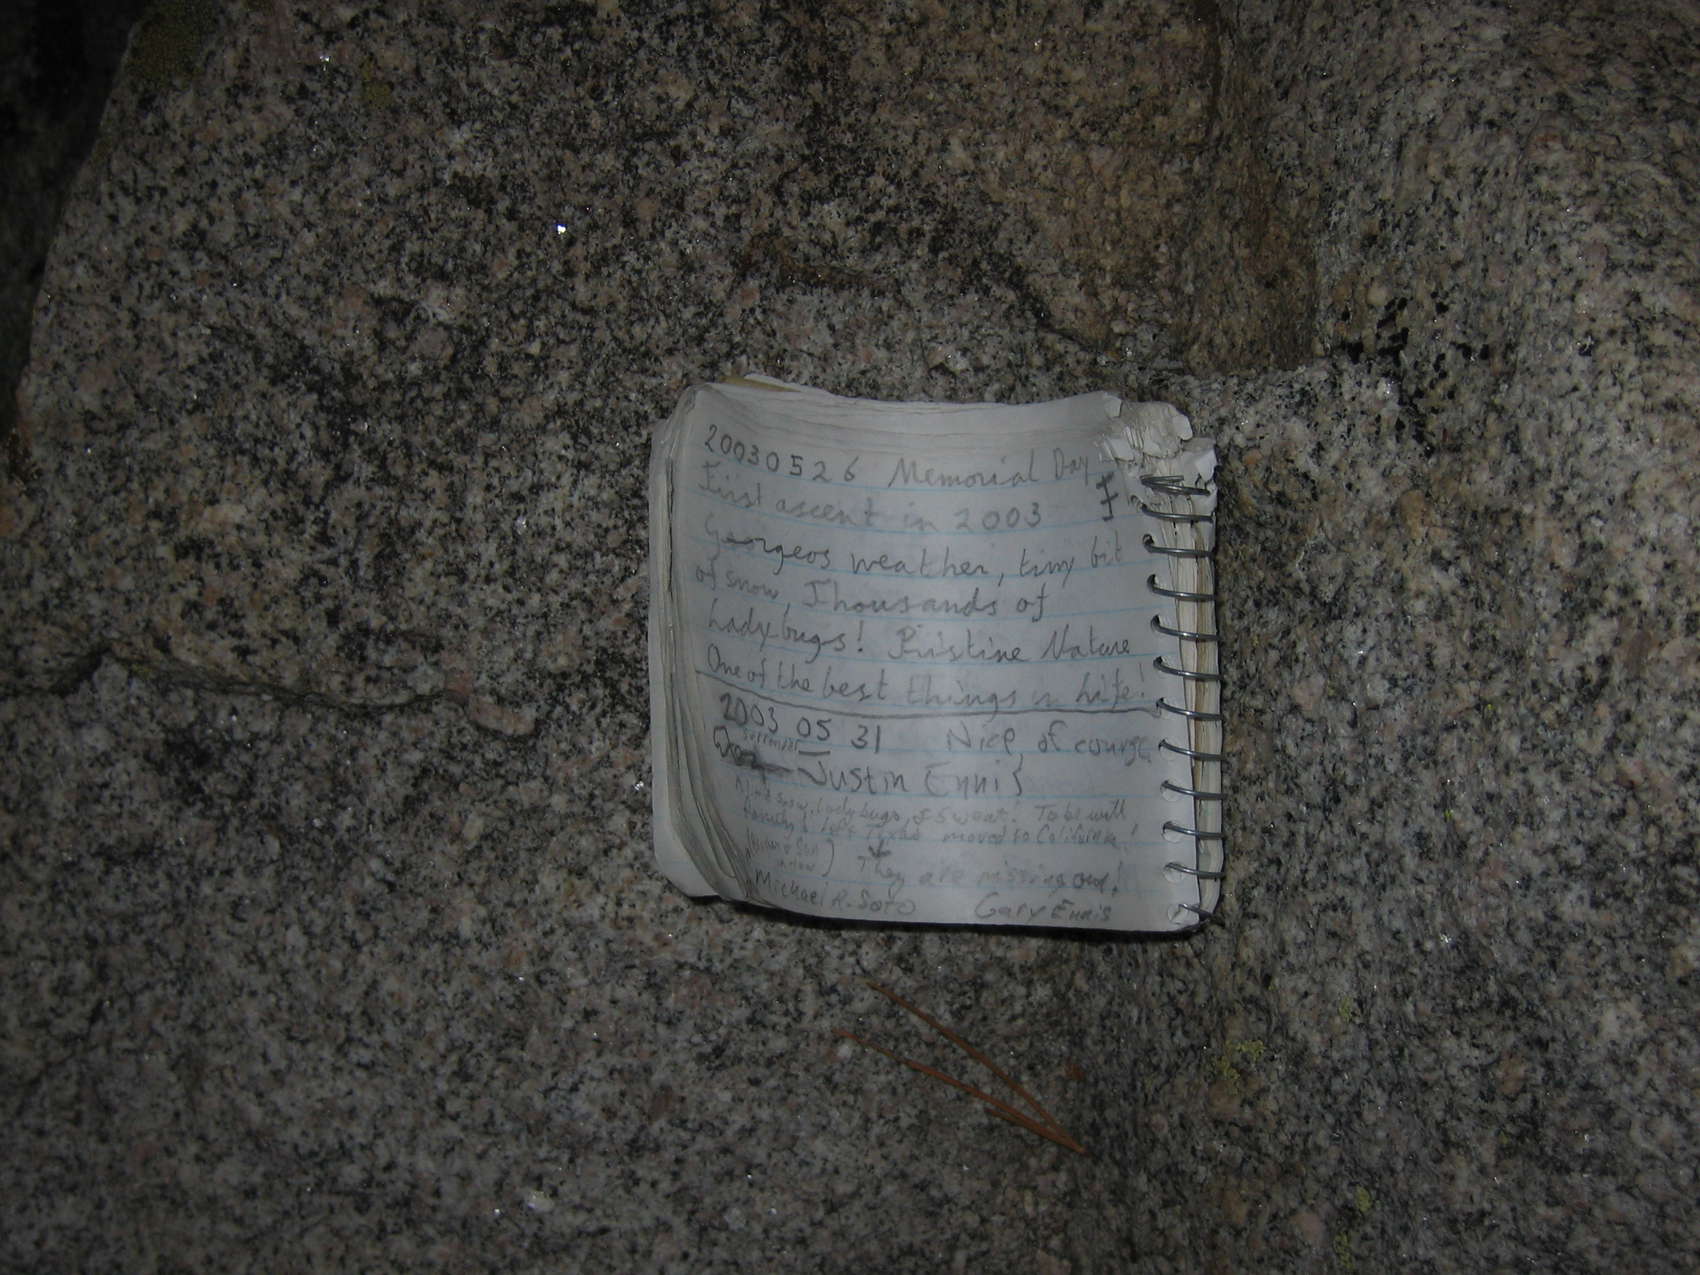 20030526 Memorial Day
First ascent in 2003
Georgeos weather, tiny bit
of snow, Thousands of
Ladybugs! Pristine Nature
One of the best things in Life!
2003 05 31 Nice, of course
Justin Ennis
snow, ladybugs, & sweat! To be with
family & moved to
They are missing out!
Michael R. Soto Gary Ennis